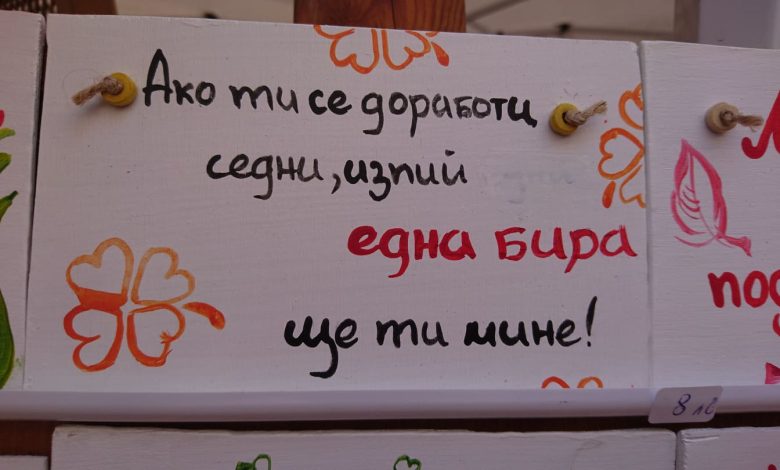 Ако ти се доработи
седни, изпий
една бира
ще ти мине!
8 лв